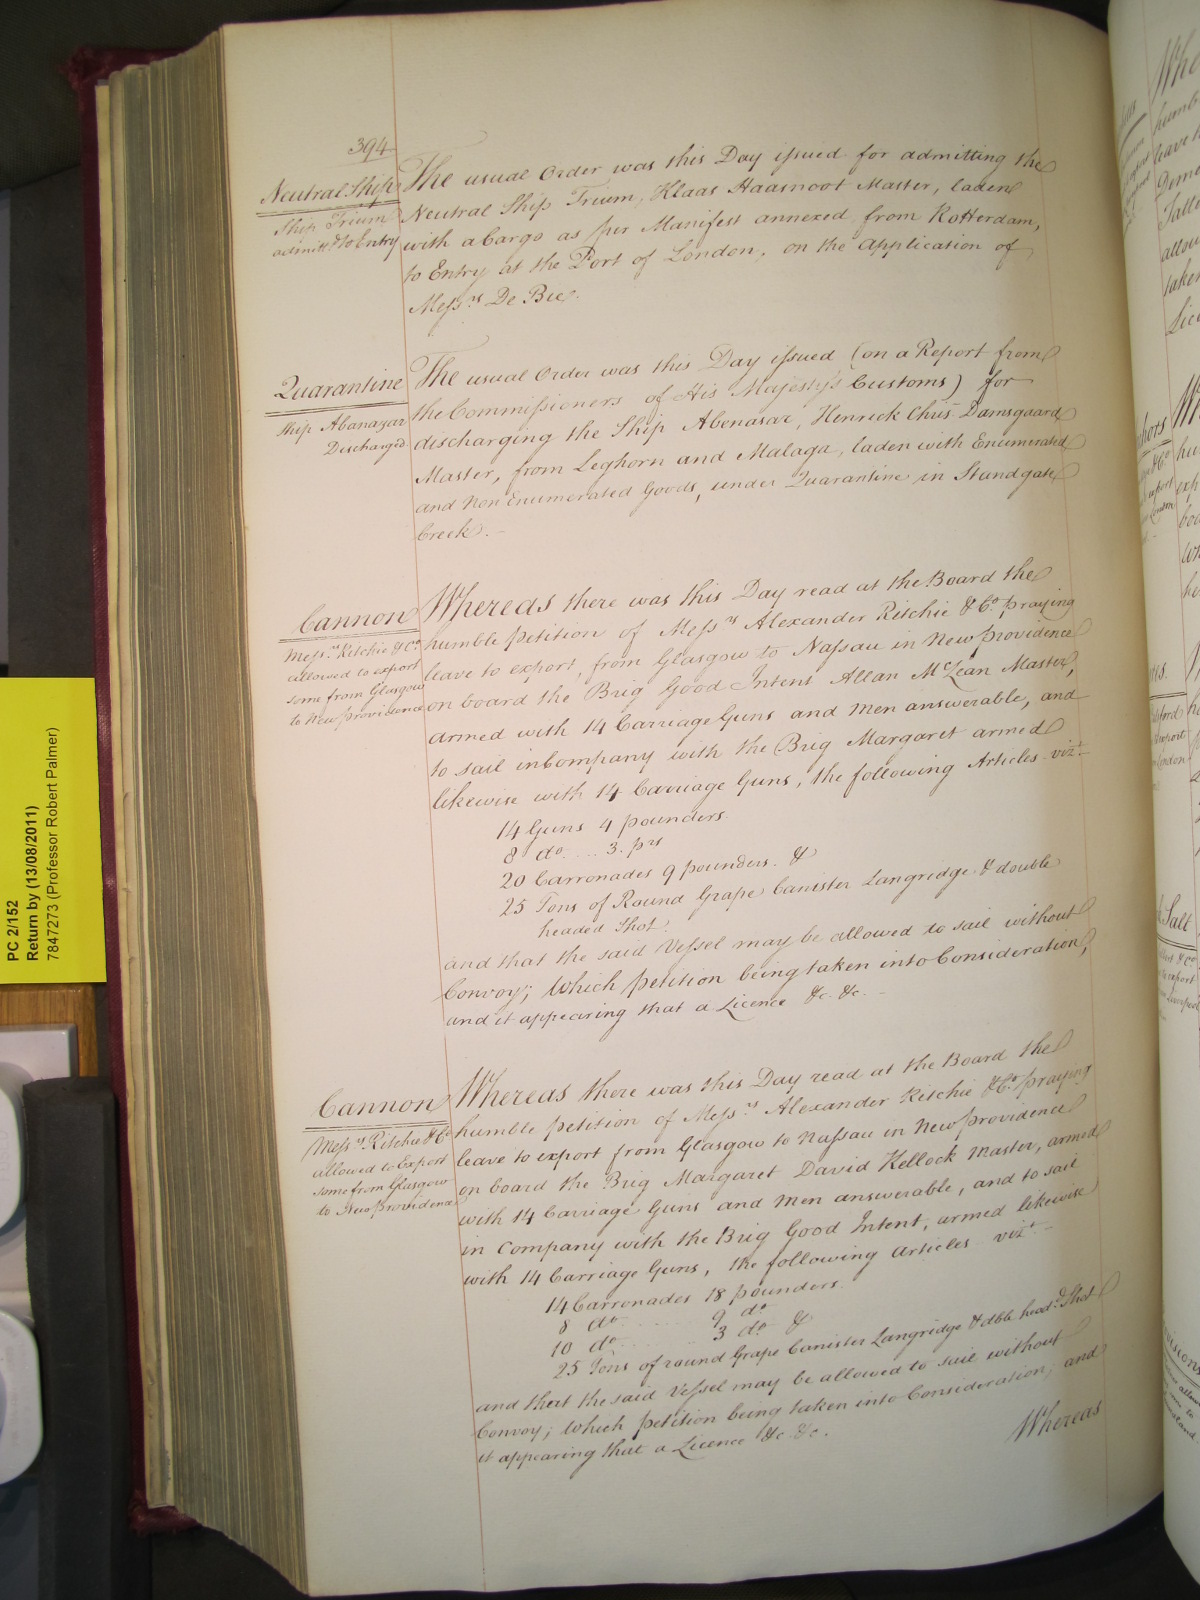 394
Neutral Ship
Ship Trium
admitt'd to Entry
The usual Order was this Day issued for admitting the
Neutral Ship Trium, Klaas Haasnoot Master, laden
with a Cargo as per Manifest annexed from Rotterdam,
to Entry at the Port of London, on the application of
Mess.rs De Bie.
Quarantine
Ship Abanazar
Discharged
The usual Order was this Day issued (on a Report from
the Commissioners of His Majesty's Customs) for
discharging the Ship Abenasar, Henrick Chris.n Damsgaard
Master, from Leghorn and Malaga, laden with Enumerated
and Non Enumerated Goods, under Quarantine in Standgate
Creek. -
Cannon
Mess.rs Ritchie & Co.
allowed to export
some from Glasgow
to New providence
Whereas there was this Day read at the Board the
humble petition of Mess.rs Alexander Ritchie & Co. praying
leave to export, from Glasgow to Nassau in New providence
on board the Brig Good Intent Allan McLean Master,
armed with 14 Carriage Guns and Men answerable, and
to sail in Company with the Brig Margaret armed
likewise with 14 Carriage Guns, the following Articles viz.t
14 Guns 4 pounders
8 do. .... 3. prs
20 Carronades 9 pounders. &
25 Tons of Round Grape Canister Langridge & double
headed Shot.
and that the said Vessel may be allowed to sail without
Convoy; Which petition being taken into Consideration,
and it appearing that a Licence &c. &c. -
Cannon
Mess.rs Ritchie & Co
allowed to Export
some from Glasgow
to New providence
Whereas there was this Day read at the Board the
humble petition of Mess.rs Alexander Ritchie & Co. praying
leave to export from Glasgow to Nassau in New providence
on board the Brig Margaret David Kellock Master, armed
with 14 Carriage Guns and Men answerable, and to sail
in Company with the Brig Good Intent, armed likewise
with 14 Carriage Guns, the following Articles viz.t
14 Carronades 18 pounders.
8 do. ....... 9 do.
10 do. ....... 3 do. &
25 Tons of round Grape Canister Langridge & dble head.d Shot
and that the said Vessel may be allowed to sail without
Convoy; Which petition being taken into Consideration; and
it appearing that a Licence &c &c.
Whereas
PC 2/152
Return by (13/08/2011)
7847273 (Professor Robert Palmer)